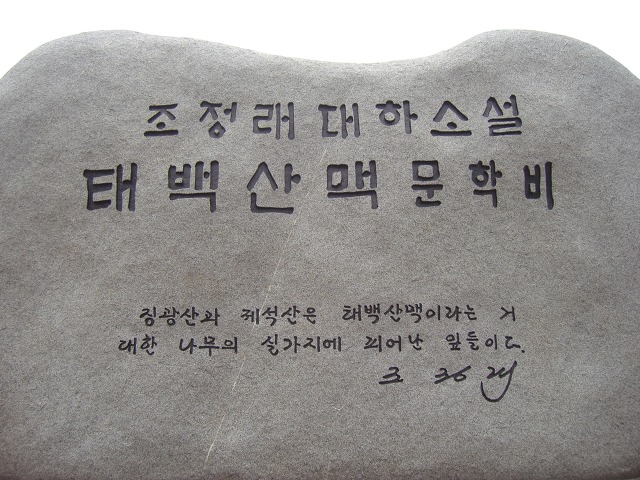 조정래대하소설
태백산맥 문학비
징광산와 제석산은 태백산맥이라는 거
대한 나무의 실가지에 피어난 잎들이다.
조정래